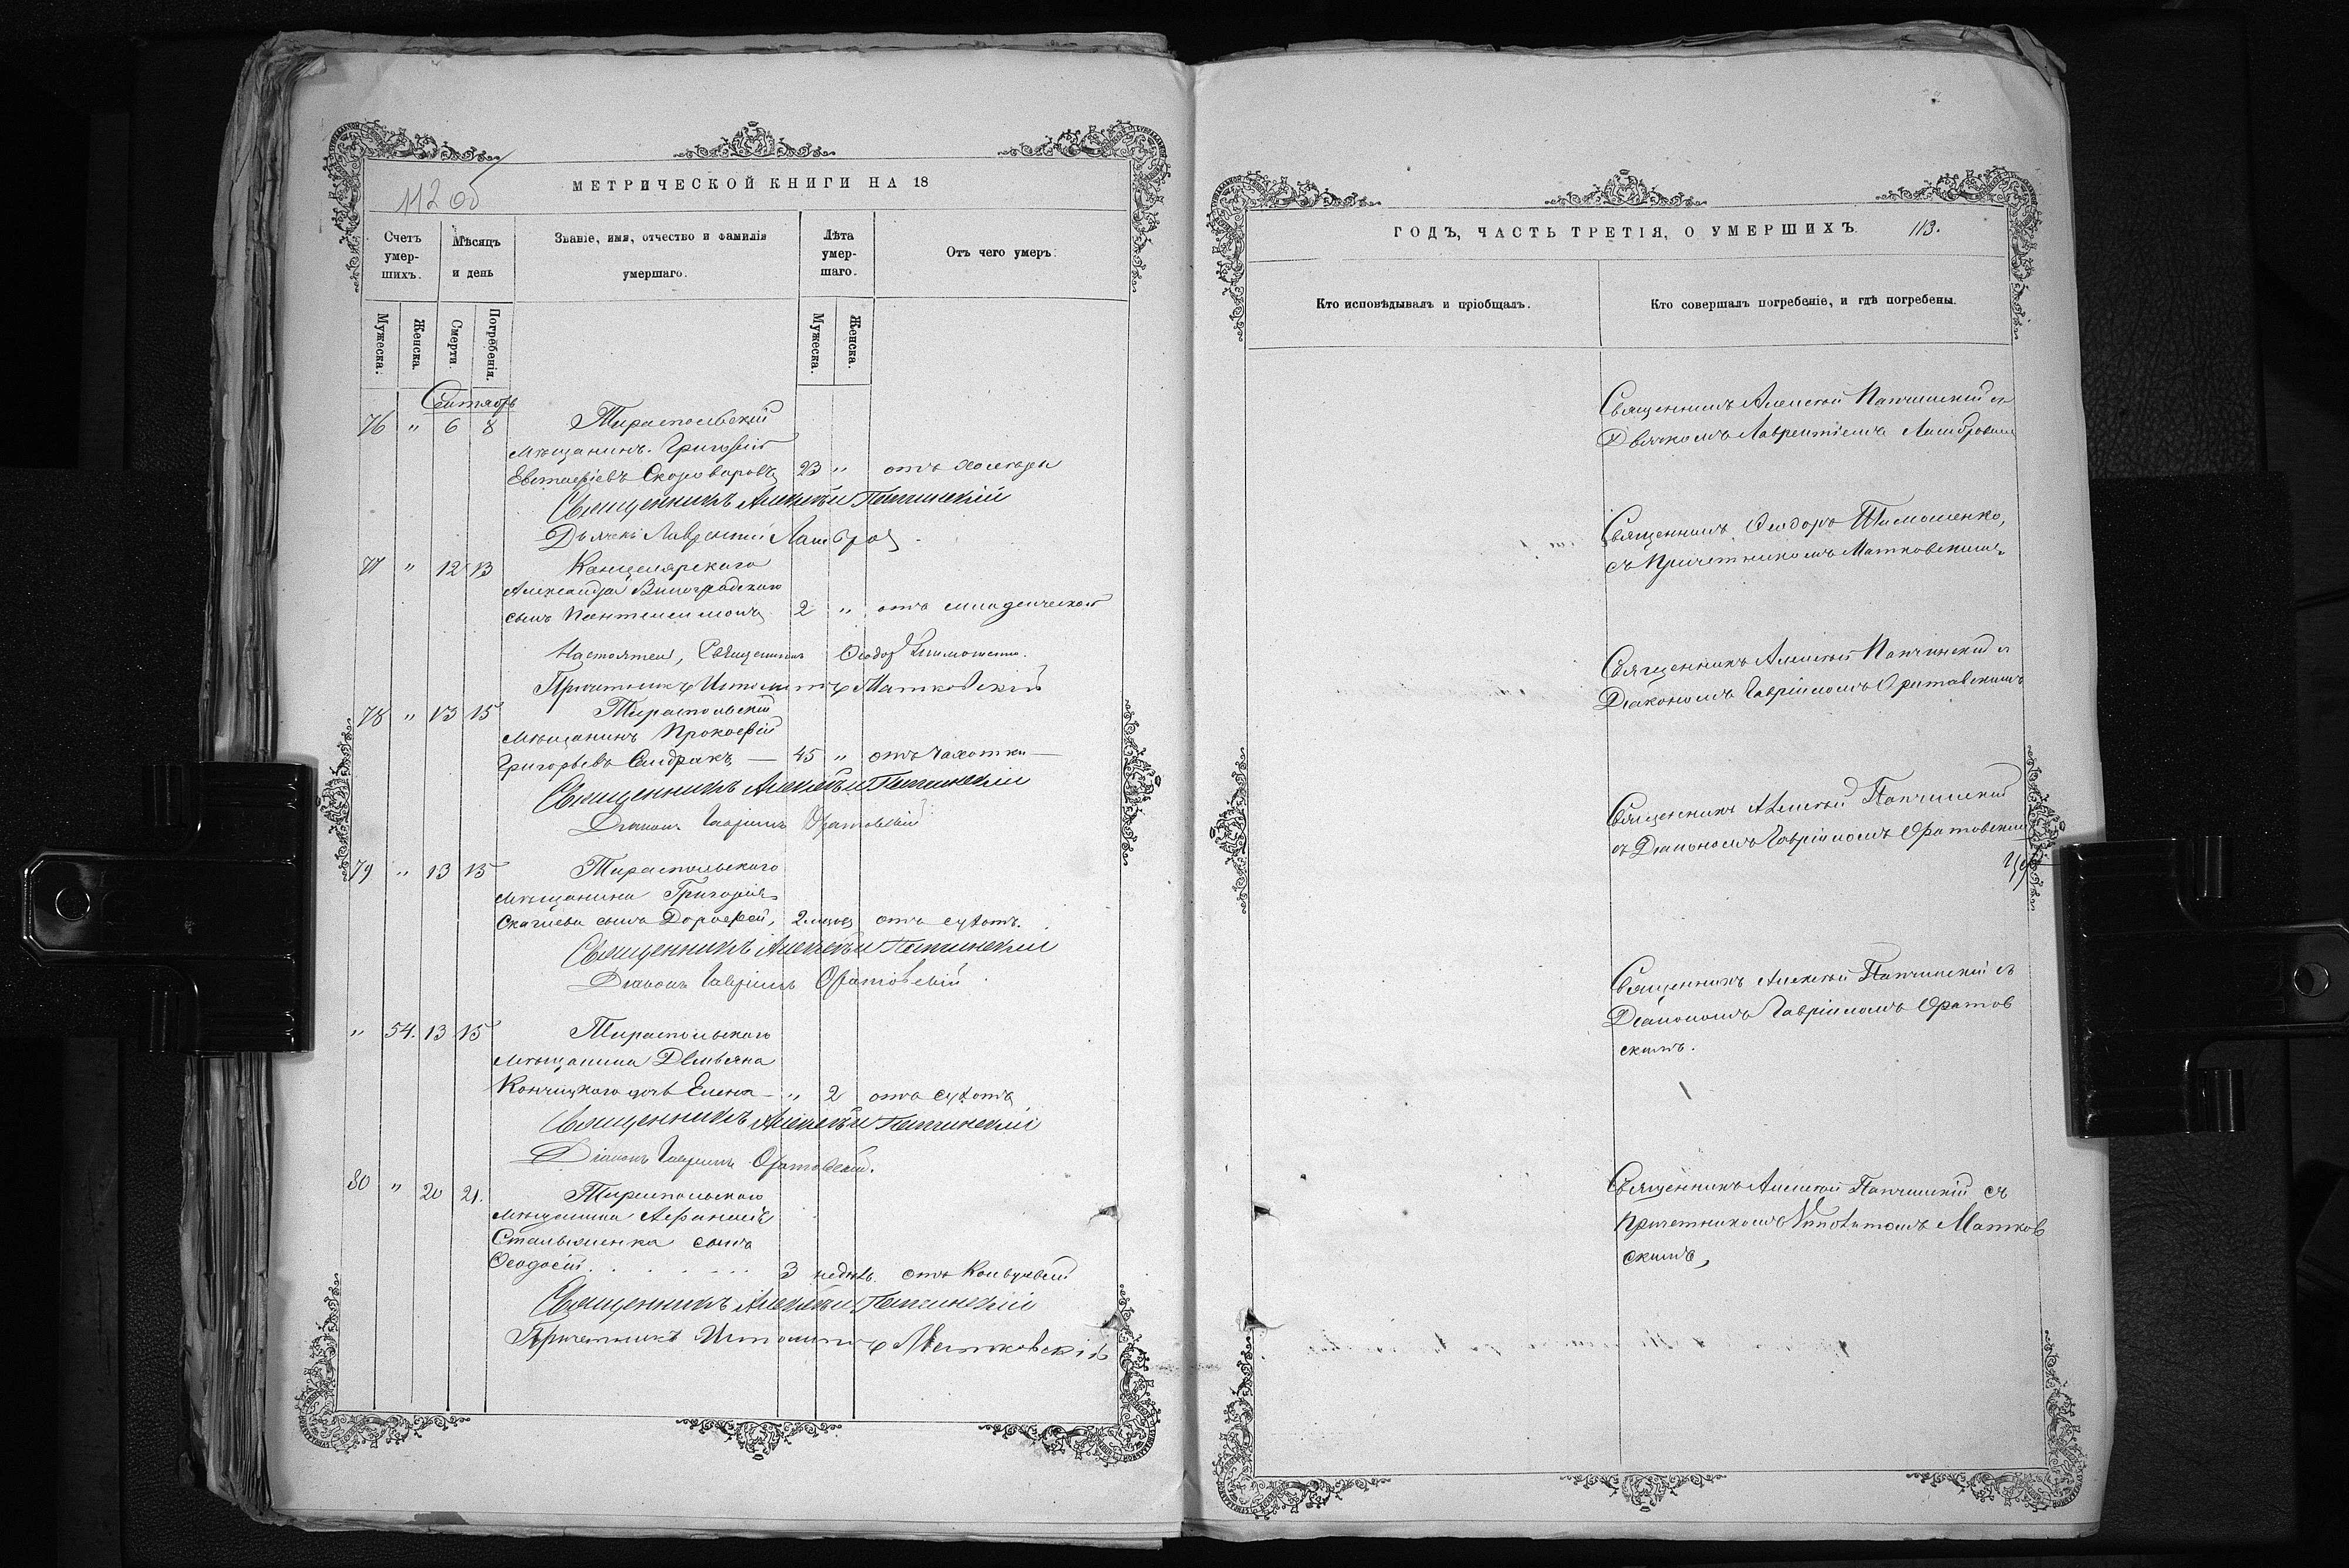 112 об
МЕТРИЧЕСКОЙ КНИГИ НА 18
Счетъ умер-шихъ.
Мѣсяцъ и день
Званіе, имя, отчество и фамилія умершаго.
Лѣта умер-шаго.
Отъ чего умеръ.
Мужеска.
Женска.
Смерти.
Погребенія.
Мужеска.
Женска.
Сентябрь
76 " 6 8 Тираспольскій
мѣщанинъ Григорій
Евстафіевъ Скороваровъ 23 " отъ холеры
Священникъ Алексѣй Папчинскій
Дьячекъ Лаврентій
77 " 12 13 Канцелярского
Александра Виноградского
сынъ Пантелеимонъ 2 " отъ младенческой
Настоятель, Священникъ Ѳеодоръ Тимошенко.
Причетникъ Ипполитъ Матковскій
78 " 13 15 Тираспольскій
мѣщанинъ Прокофій
Григорьевъ Сидракъ — 45 " отъ чахотки —
Священникъ Алексѣй Папчинскій
Діаконъ Гавріилъ Оратовскій
79 " 13 15 Тираспольского
мѣщанина Григорія
сынъ Дорофей, 2 отъ сухотъ.
Священникъ Алексѣй Папчинскій
Діаконъ Гавріилъ Оратовскій.
" 54. 13 15 Тираспольского
мѣщанина Демьяна
Кончицкого дочь Елена — " 2 отъ сухотъ
Священникъ Алексѣй Папчинскій
Діаконъ Гавріилъ Оратовскій.
80 " 20 21. Тираспольского
мѣщанина Афанасія
Стальниченка сынъ
Ѳеодосій. 3 недѣль отъ Конвульсій
Священникъ Алексѣй Папчинскій
Причетникъ Ипполитъ Матковскій
ГОДЪ, ЧАСТЬ ТРЕТІЯ, О УМЕРШИХЪ.
113.
Кто исповѣдывалъ и пріобщалъ.
Кто совершалъ погребеніе, и гдѣ погребены.
Священникъ Алексѣй Папчинскій съ
Дьячкомъ Лаврентіемъ
Священникъ Ѳеодоръ Тимошенко,
съ Причетникомъ Матковскимъ.
Священникъ Алексѣй Папчинскій съ
Діакономъ Гавріиломъ Оратовскимъ
Священникъ Алексѣй Папчинскій
съ Діакономъ Гавріиломъ Оратовским
Священникъ Алексѣй Папчинскій съ
Діакономъ Гавріиломъ Оратов
скимъ.
Священникъ Алексѣй Папчинскій съ
Причетникомъ Ипполитомъ Матков
скимъ,